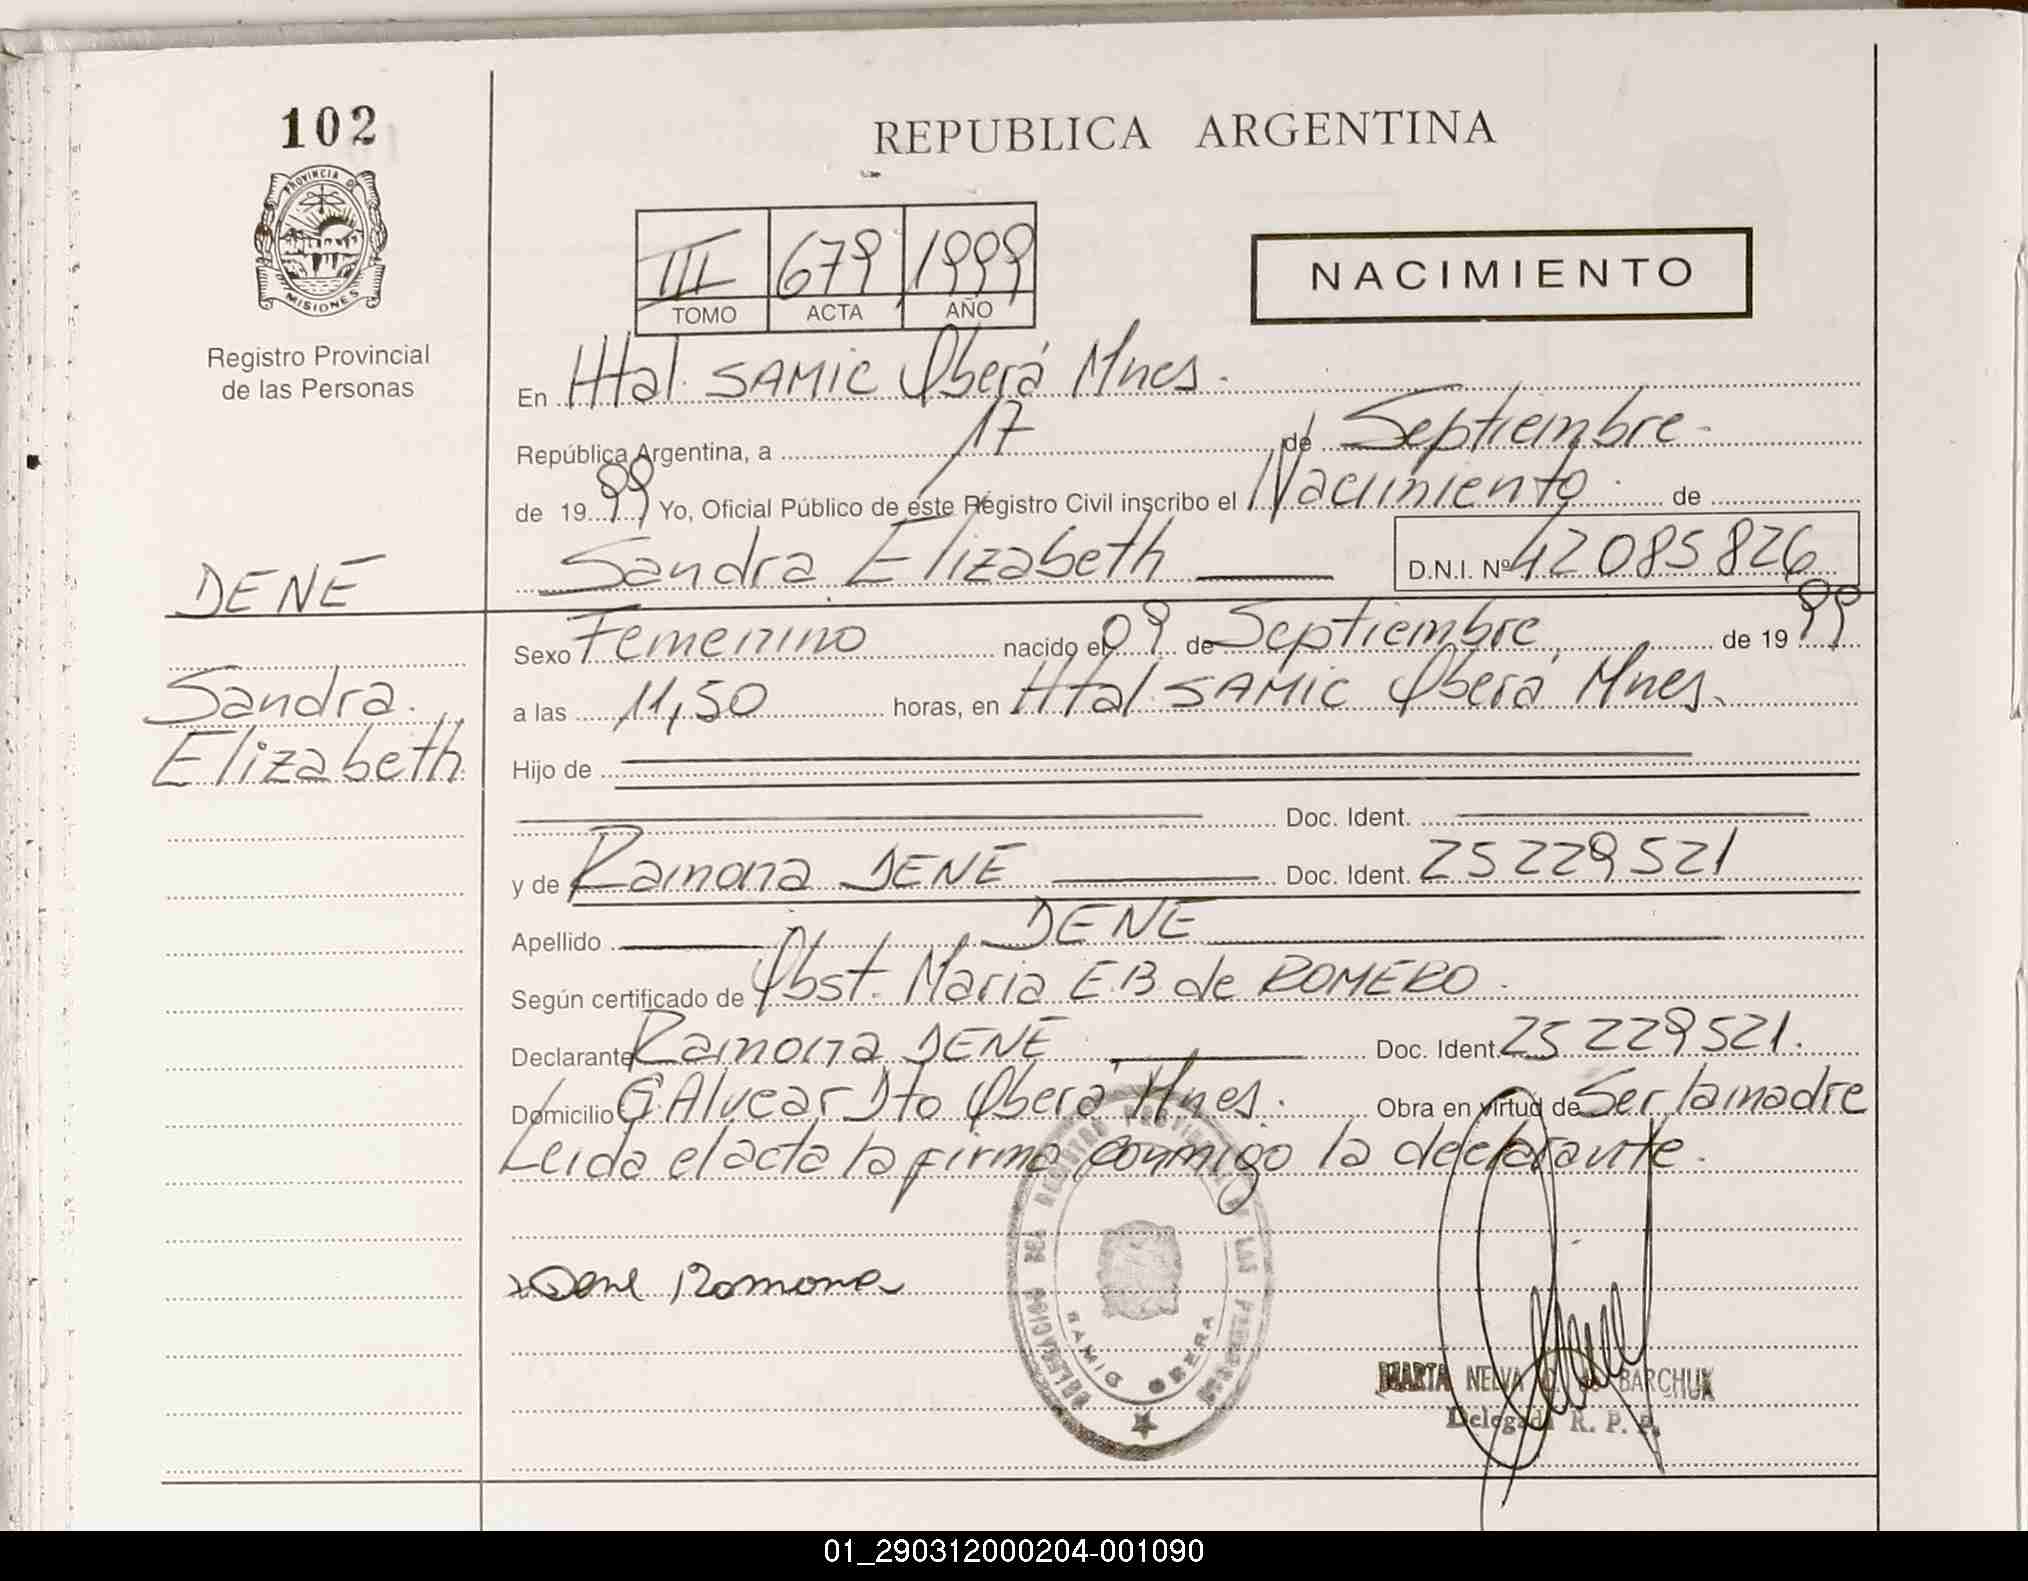 102
PROVINCIA DE
MISIONES
Registro Provincial
de las Personas
REPUBLICA ARGENTINA
III 679 1999
TOMO ACTA AÑO
NACIMIENTO
En Htal. SAMIC Oberá Mnes.
República Argentina, a 17 de Septiembre.
de 1999 Yo, Oficial Público de este Registro Civil inscribo el Nacimiento. de
Sandra Elizabeth D.N.I. Nº 42085826
DENE
Sandra.
Elizabeth
Sexo Femenino nacido el 09 de Septiembre de 1999
a las 11,50 horas, en Htal. SAMIC Oberá Mnes.
Hijo de
Doc. Ident.
y de Ramona DENE Doc. Ident. 25229521
Apellido DENE
Según certificado de Obst. Maria E.B de ROMERO.
Declarante Ramona DENE Doc. Ident. 25229521.
Domicilio G. Alvear Dto Oberá Mnes. Obra en virtud de Ser la madre
Leida el acta la firma conmigo la declarante.
Dene Ramona
DELEGACION DEL REGISTRO PROVINCIAL DE LAS PERSONAS
SAMIC OBERA
MARTA NELVA BARCHUK
Delegada R. P. P.
01_290312000204-001090